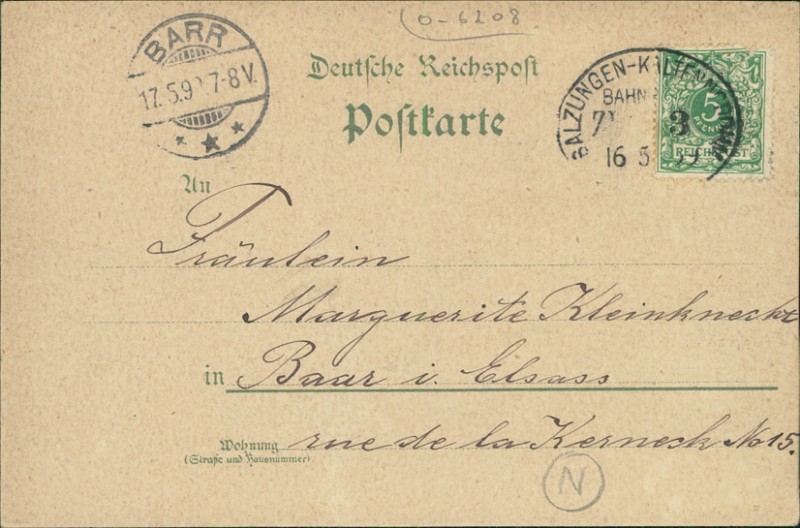 0-6208
BARR
17.5.9 7-8V.
Deutsche Reichspost
Postkarte
SALZUNGEN-KALTENNORDHEIM
BAHN
ZUG 3
16 5 99
5
PFENNIG
REICHSPOST
An
Fräulein
Marguerite Kleinknecht
in Baar i. Elsass
Wohnung rue de la Kerneck No 15.
(Straße und Hausnummer)
N